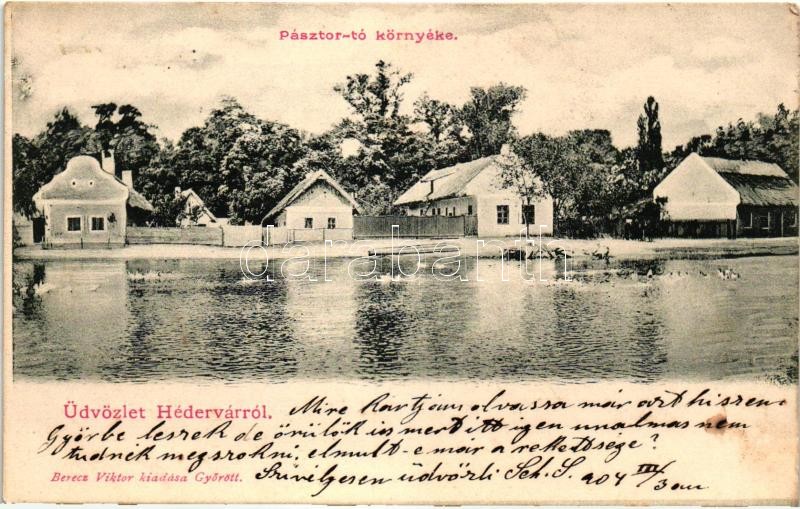 Pásztor-tó környéke.
darabanth
Üdvözlet Hédervárról.
Mire Kartjám olvassa már azt hiszem
Győrbe leszek de örülök is mert itt igen unalmas nem
tudnék megszokni, elmult-e már a rekettsége?
Szívélyesen üdvözli Sch. S. 904 III/3 án
Berecz Viktor kiadása Győrött.